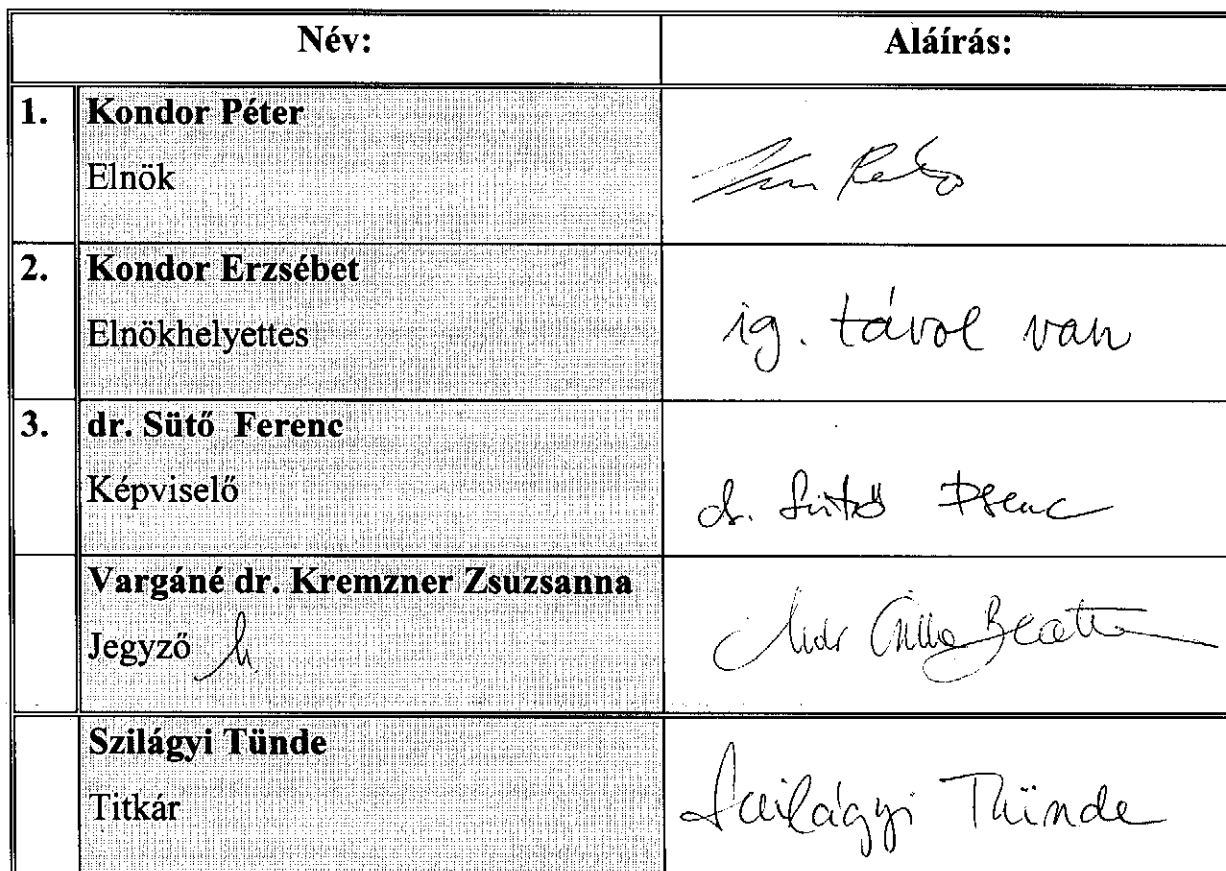 Név: Aláírás:
1. Kondor Péter
Elnök
2. Kondor Erzsébet
Elnökhelyettes ig. távol van
3. dr. Sütő Ferenc
Képviselő dr. Sütő Ferenc
Vargáné dr. Kremzner Zsuzsanna
Jegyző
Szilágyi Tünde
Titkár Szilágyi Tünde